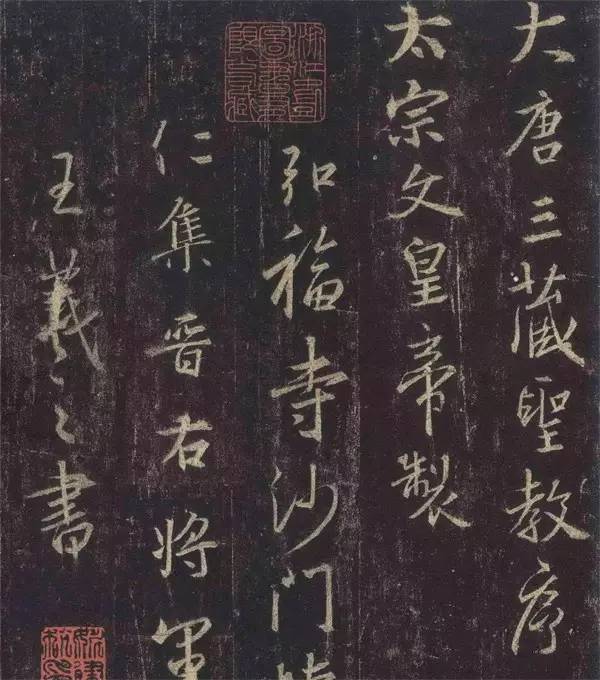 大唐三藏聖教序
太宗文皇帝製
弘福寺沙門
仁集晋右將軍
王羲之書